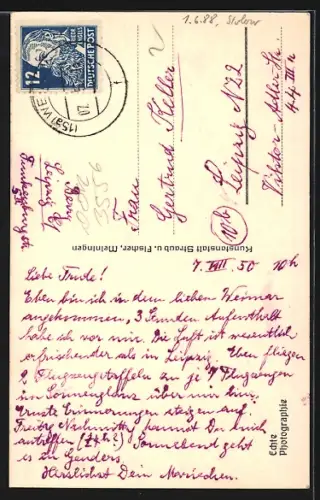 1.6.88,
12
DEUTSCHE POST
(15a) WE
07.
Frau
Gertrud Keller
Leipzig N 22
Viktor-Adler-Str.
44 III r.
(10b)
Leipzig
3556
Kunstanstalt Straub u. Fischer, Meiningen
Echte
Photographie
7. VIII. 50 10 h
Liebe Trude!
Eben bin ich in dem lieben Weimar
angekommen, 3 Stunden Aufenthalt
habe ich vor mir. Die Luft ist wesentlich
erfrischender als in Leipzig. Eben fliegen
2 Flugzeugstaffeln zu je 7 Flugzeugen
im Sonnenglanz über mir hin.
Ernste Erinnerungen steigen auf.
Freitag Nachmittag kannst Du mich
antreffen Sonnabend geht
es zu
Herzlichst Dein Mariechen.